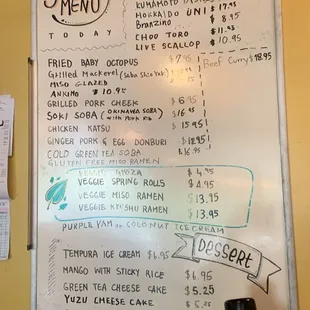 MENU
TODAY
KUMAMOTO
HOKKAIDO UNI $17.95
Branzino 8.95
CHOO TORO $11.95
LIVE SCALLOP $10.95
FRIED BABY OCTOPUS $7.95
Grilled Mackerel (Saba Shio Yaki)
MISO GLAZED
ANKIMO $10.95
Beef Curry $18.95
GRILLED PORK CHEEK $6.95
SOKI SOBA (OKINAWA SOBA with Pork Rib) $16.95
CHICKEN KATSU $15.95
GINGER PORK & EGG DONBURI $12.95
COLD GREEN TEA SOBA $16.95
GLUTEN FREE MISO RAMEN
VEGGIE GYOZA $4.95
VEGGIE SPRING ROLLS $4.95
VEGGIE MISO RAMEN $13.95
VEGGIE KYUSHU RAMEN $13.95
PURPLE YAM or COCONUT ICE CREAM
Dessert
TEMPURA ICE CREAM $6.95
MANGO WITH STICKY RICE $6.95
GREEN TEA CHEESE CAKE $5.25
YUZU CHEESE CAKE $5.25